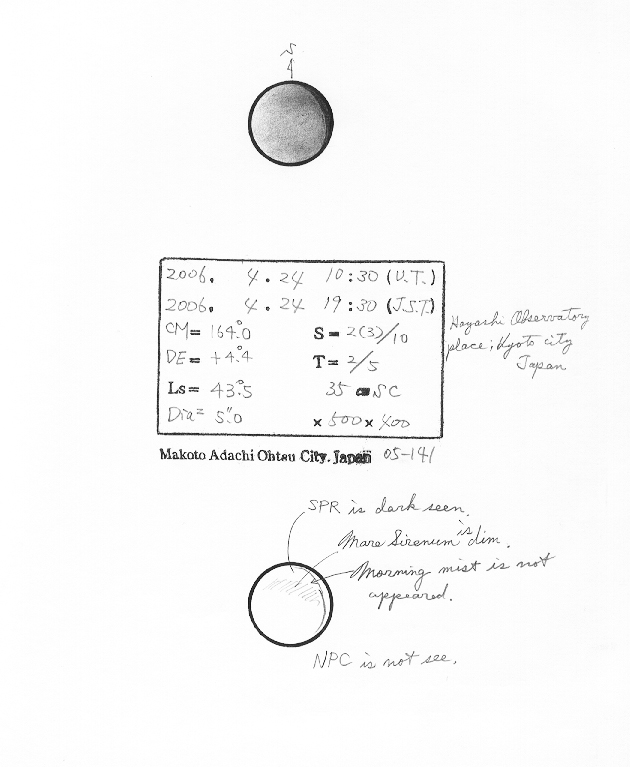 S
2006. 4.24 10:30 (U.T.)
2006. 4.24 19:30 (J.S.T)
CM= 164.°0 S= 2(3)/10
DE= +4.°4 T= 2/5
Ls= 43.°5 35 cm SC
Dia= 5."0 ×500×400
Hayashi Observatory
place; Kyoto city
Japan
Makoto Adachi Ohtsu City. Japan 05-141
SPR is dark seen.
Mare Sirenum is dim.
Morning mist is not
appeared.
NPC is not see.